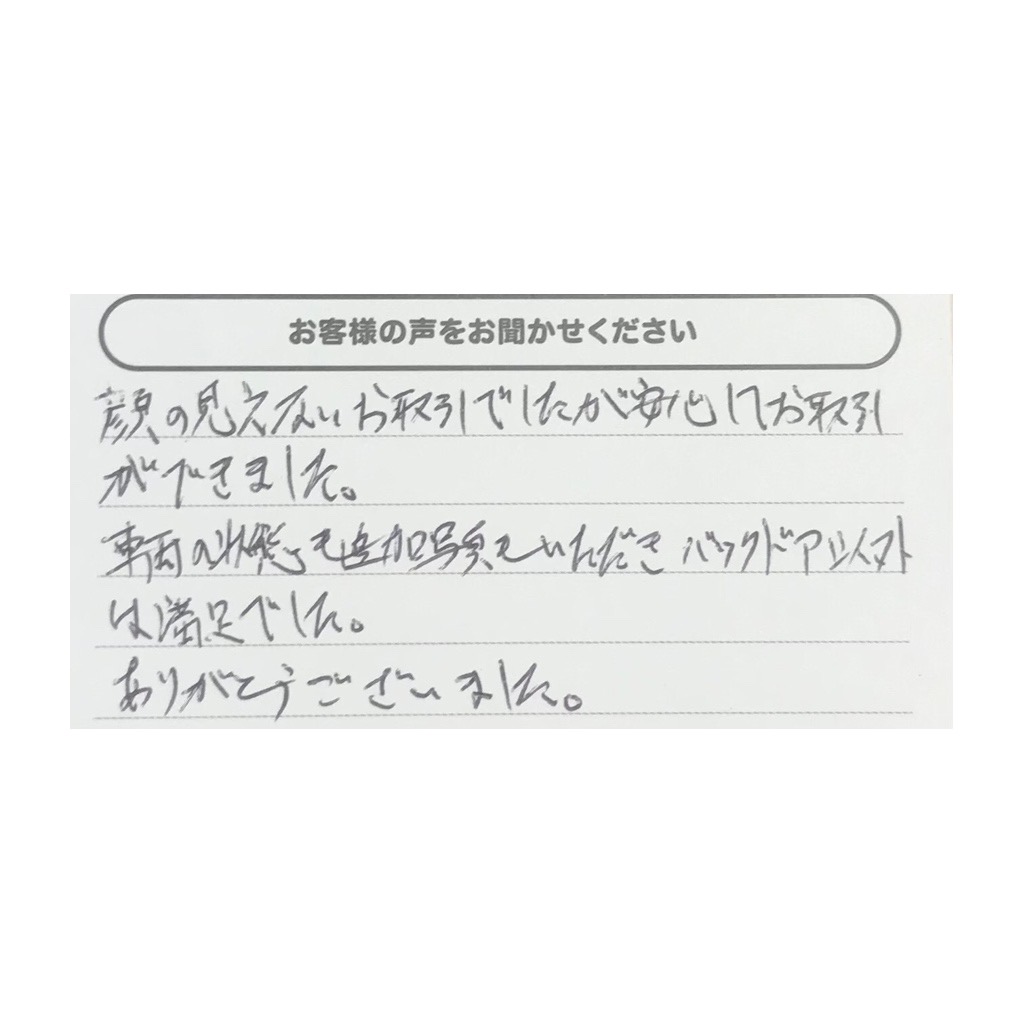 お客様の声をお聞かせください
顔の見えないお取引でしたが安心してお取引
ができました。
車両の状態も追加写真をいただき バックドア
は満足でした。
ありがとうございました。